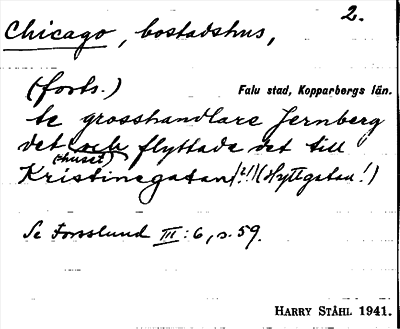 2.
Chicago, bostadshus,
(forts.)
Falu stad, Kopparbergs län.
te grosshandlare Jernberg
det och flyttade det till
(huset)
Kristinegatan (?!) (Hyttgatan!)
Se Forsslund III: 6, s. 59.
HARRY STÅHL 1941.